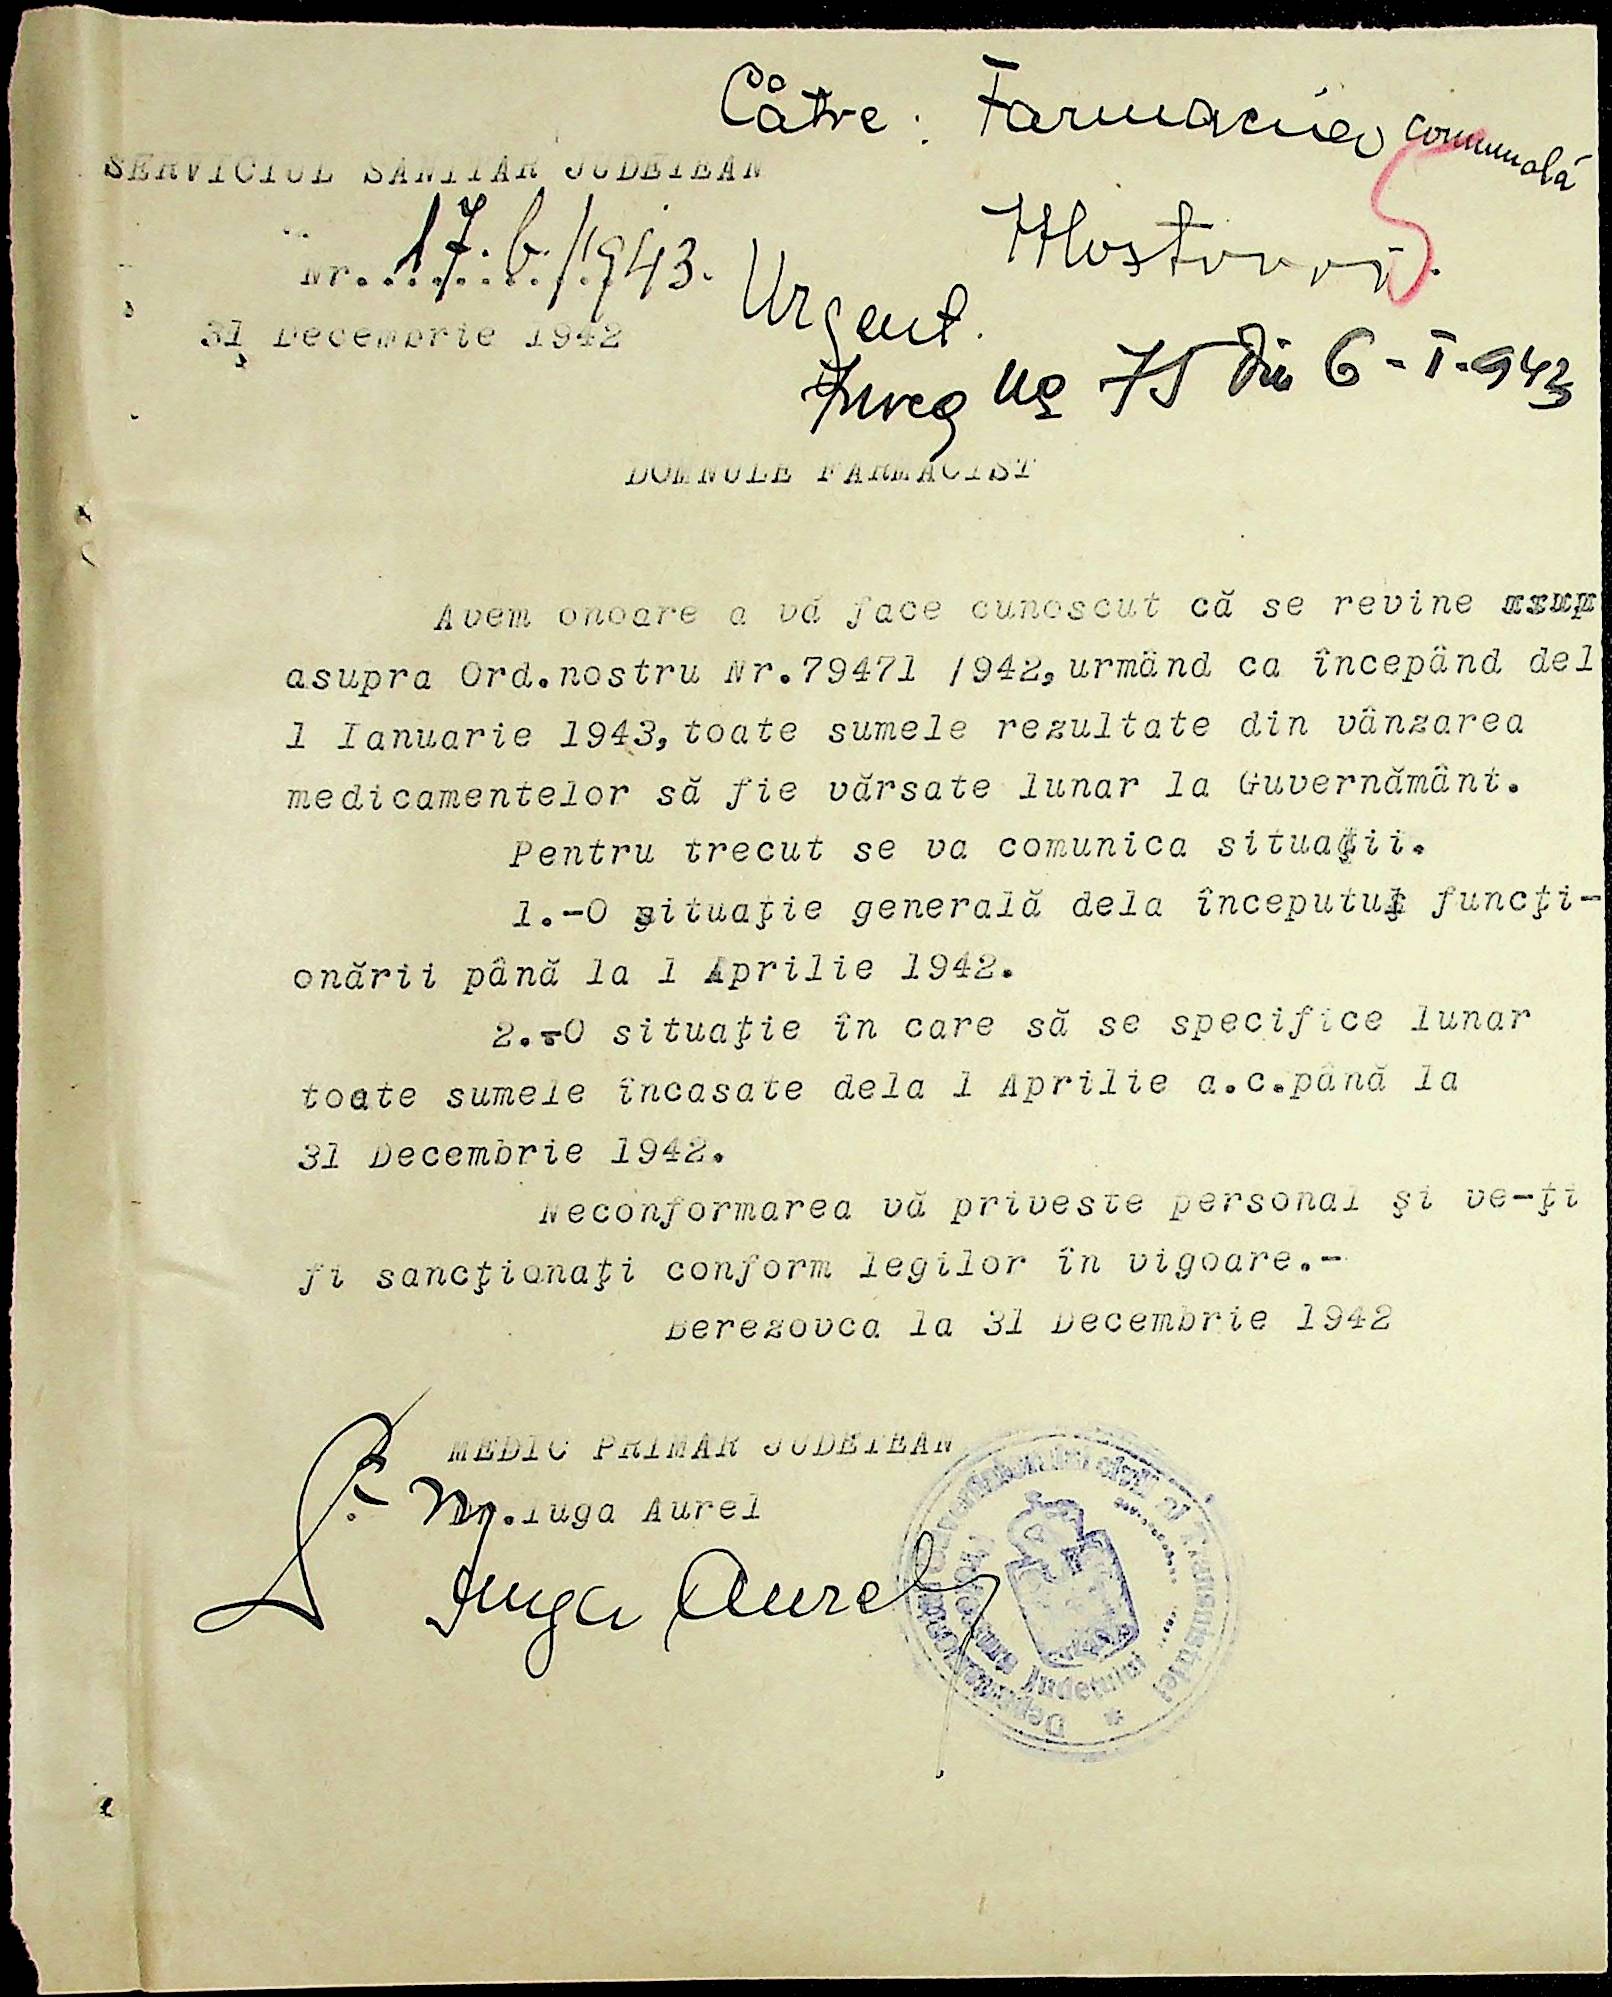 Către: Farmacia comunală
SERVICIUL SANITAR JUDEȚEAN
Nr. 17.6./1943.
Urgent.
31 Decembrie 1942
Inreg No 75 din 6-I-943
DOMNULE FARMACIST
Avem onoare a vă face cunoscut că se revine xxup
asupra Ord.nostru Nr.79471 /942,urmând ca începând del
1 Ianuarie 1943,toate sumele rezultate din vânzarea
medicamentelor să fie vărsate lunar la Guvernământ.
Pentru trecut se va comunica situaţii.
1.-O situaţie generală dela începutul funcţi-
onării până la 1 Aprilie 1942.
2.-O situaţie în care să se specifice lunar
toate sumele încasate dela 1 Aprilie a.c.până la
31 Decembrie 1942.
Neconformarea vă priveste personal şi ve-ţi
fi sancţionaţi conform legilor în vigoare.-
Berezovca la 31 Decembrie 1942
MEDIC PRIMAR JUDETEAN
Dr.Iuga Aurel
Iuga Aurel
Guvernământul civil al Transnistriei
Judeţului